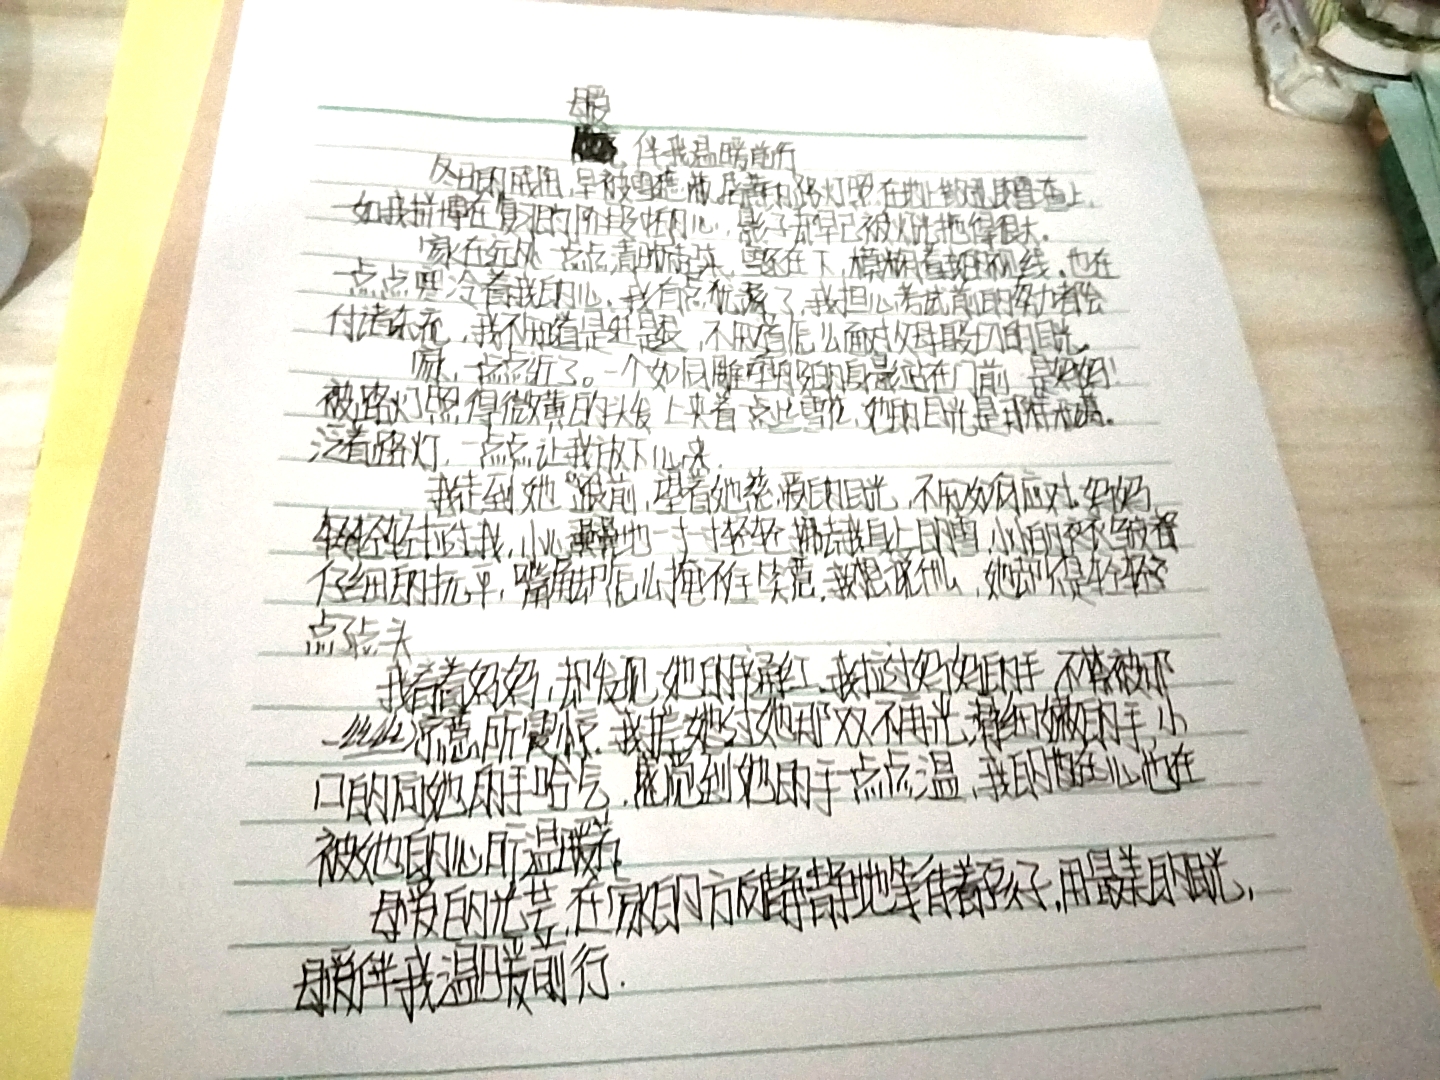 母爱
伴我温暖前行
冬日的骄阳,早被雪遮蔽,昏黄的路灯照在地上散乱的雪渣上,
如我拼博在复习的阶段的心,影子却早已被灯光拖得很长。
家在远处一点点清晰起来,雪还在下,模糊着我的视线,也在
一点点寒冷着我的心,我有点犹豫了,我担心考试前的努力都会
付诸东流,我不知道是进是退,不知道怎么面对父母殷切的目光。
家,一点点近了。一个如同雕塑般的身影站在门前,是妈妈!
被路灯照得微黄的头发上夹着点点雪花,她的目光是那样
泛着路灯,一点点让我放下心来.
我走到她跟前,望着她慈爱的目光,不知如何应对,妈妈
轻轻拉过我,小心翼翼地一寸一寸轻轻拂去我身上的雪,小心的
仔细的抚平,嘴角却怎么掩不住笑意,我想说什么,她却只是轻轻
点了点头
我看着妈妈,却发现她的 通红,我拉过妈妈的手,不禁被那
凉意所震惊.我 她 她那双不再光滑细嫩的手,小
口的向她的手哈气,感觉到她的手一点点温,我的 心也在
被她的心所温暖着.
母爱的光芒,在家的方向静静地等待着孩子,用最美的目光,
母爱伴我温暖前行.